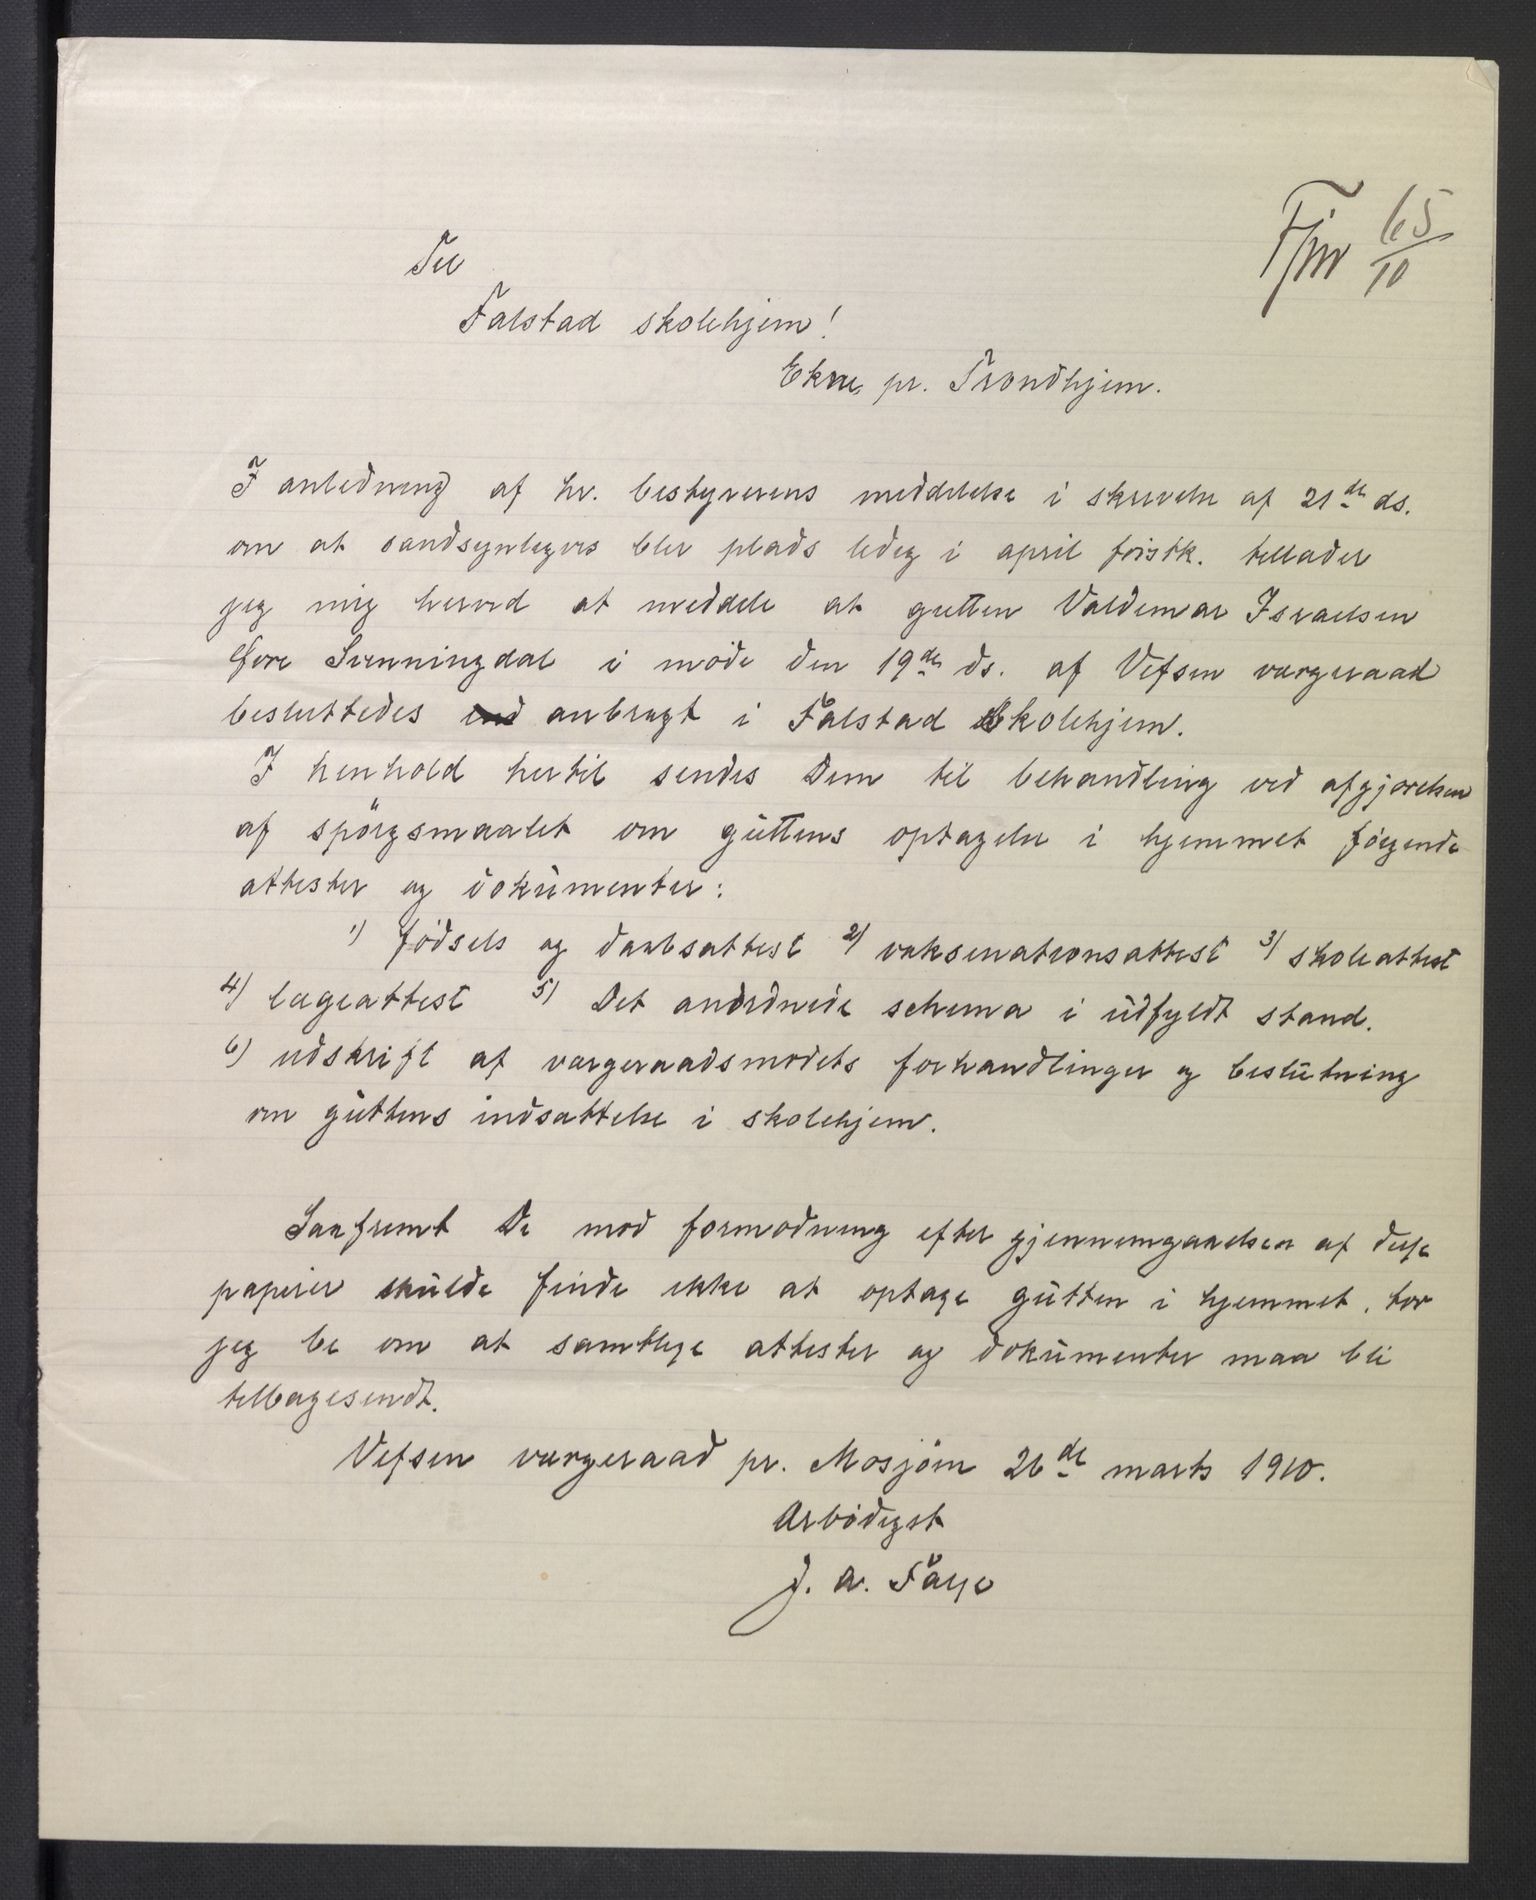 65/10
Til
Falstad skolehjem!
Ekne, pr. Trondhjem.
I anledning af hr. bestyrerens meddelelse i skrivelse af 21de ds.
om at sandsynligvis blir plads ledig i april førstk. tillader
jeg mig herved at meddele at gutten Valdemar Israelsen
Øvre Svenningdal i møde den 19de ds. af Vefsen vergeraad
besluttedes anbragt i Falstad Skolehjem.
I henhold hertil sendes Dem til behandling ved afgjørelsen
af spørgsmaalet om guttens optagelse i hjemmet følgende
attester og dokumenter:
1) fødsels og daabsattest 2) vaksinationsattest 3) skoleattest
4) lægeattest 5) Det anordnede schema i udfyldt stand.
6) udskrift af værgeraadsmødets forhandlinger og beslutning
om guttens indsættelse i skolehjem.
Saafremt De mod formodning efter gjennemgaaelsen af disse
papirer skulde finde ikke at optage gutten i hjemmet, tør
jeg be om at samtlige attester og dokumenter maa bli
tilbagesendt.
Vefsen værgeraad pr. Mosjøen 26de marts 1910.
Ærbødigst
J. A.